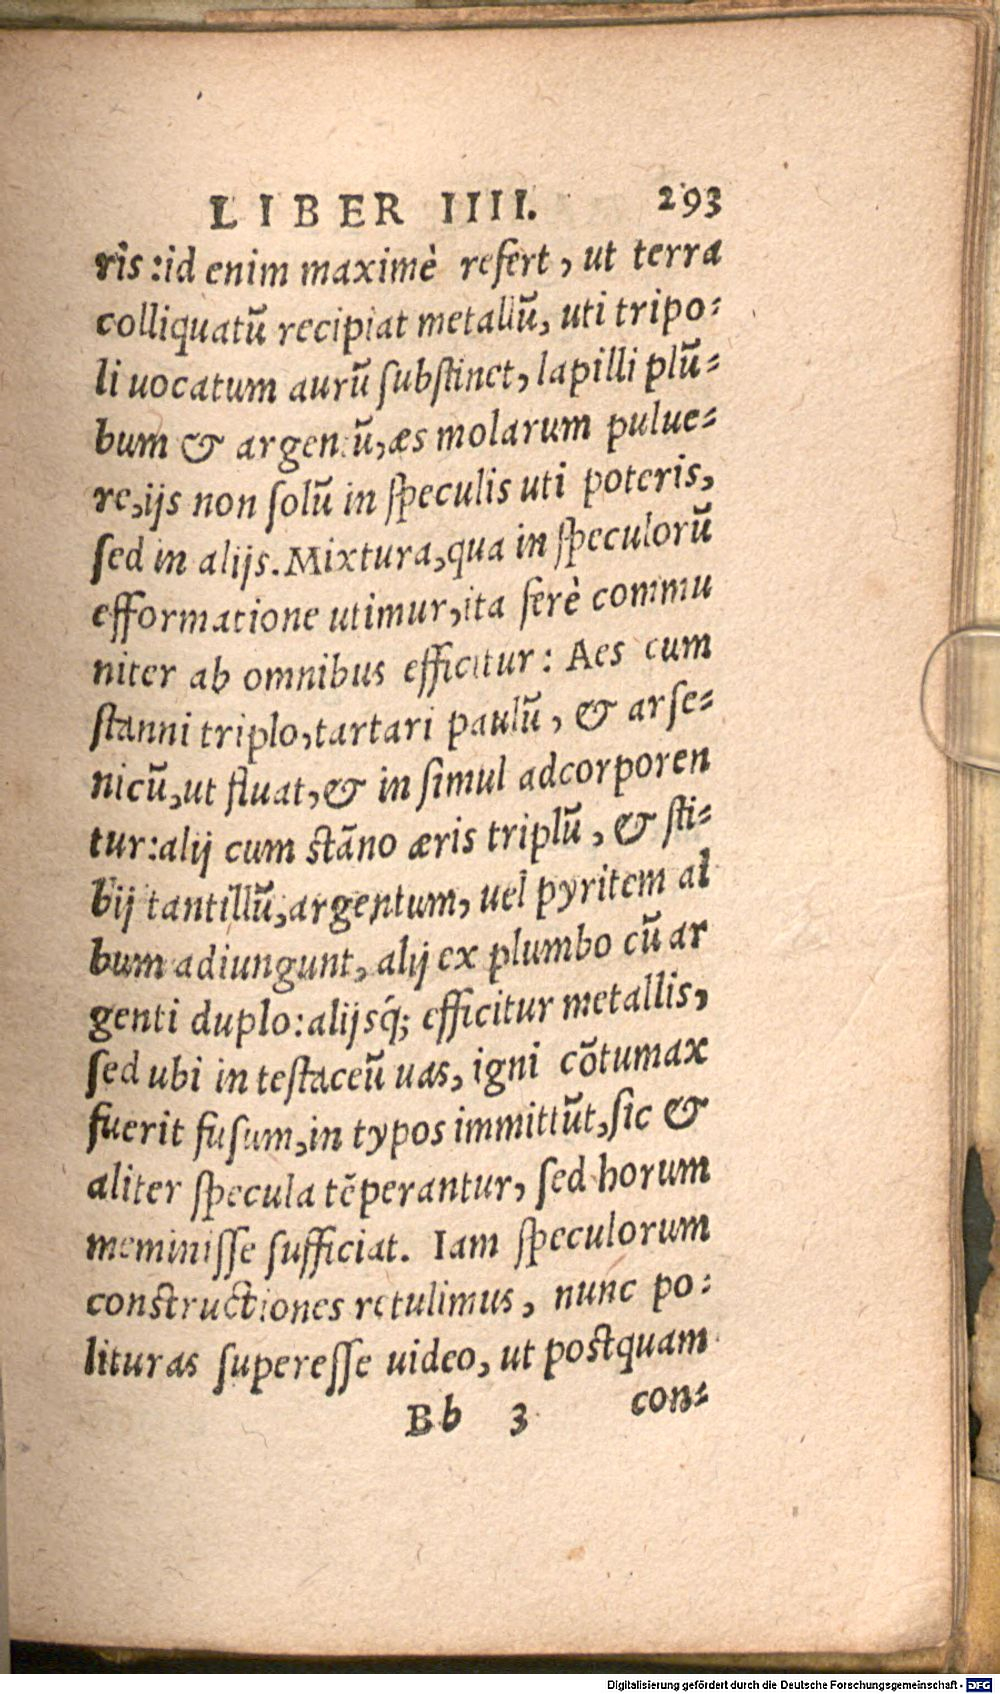 LIBER IIII. 293
ris: id enim maximè refert, ut terra
colliquatũ recipiat metallũ, uti tripo-
li uocatum aurũ ſubſtinet, lapilli plũ-
bum & argentũ, æs molarum pulue-
re, ijs non ſolũ in ſpeculis uti poteris,
ſed in alijs. Mixtura, qua in ſpeculorũ
efformatione utimur, ita ferè commu
niter ab omnibus efficitur: Aes cum
ſtanni triplo, tartari paulũ, & arſe-
nicũ, ut fluat, & in ſimul adcorporen
tur: alij cum ſtãno æris triplũ, & ſti-
bij tantillũ, argentum, uel pyritem al
bum adiungunt, alij ex plumbo cũ ar
genti duplo: alijsq́; efficitur metallis,
ſed ubi in teſtaceũ uas, igni cõtumax
fuerit fuſum, in typos immittũt, ſic &
aliter ſpecula tẽperantur, ſed horum
meminiſſe ſufficiat. Iam ſpeculorum
conſtructiones retulimus, nunc po-
lituras ſupereſſe uideo, ut poſtquam
Bb 3 con-
Digitalisierung gefördert durch die Deutsche Forschungsgemeinschaft - DFG